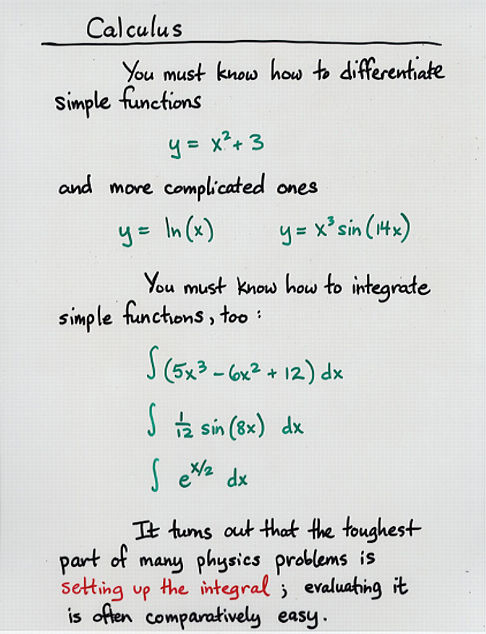 Calculus
You must know how to differentiate
simple functions
y = x² + 3
and more complicated ones
y = ln(x) y = x³ sin(14x)
You must know how to integrate
simple functions, too :
∫ (5x³ - 6x² + 12) dx
∫ 1/12 sin(8x) dx
∫ e^(x/2) dx
It turns out that the toughest
part of many physics problems is
setting up the integral ; evaluating it
is often comparatively easy.